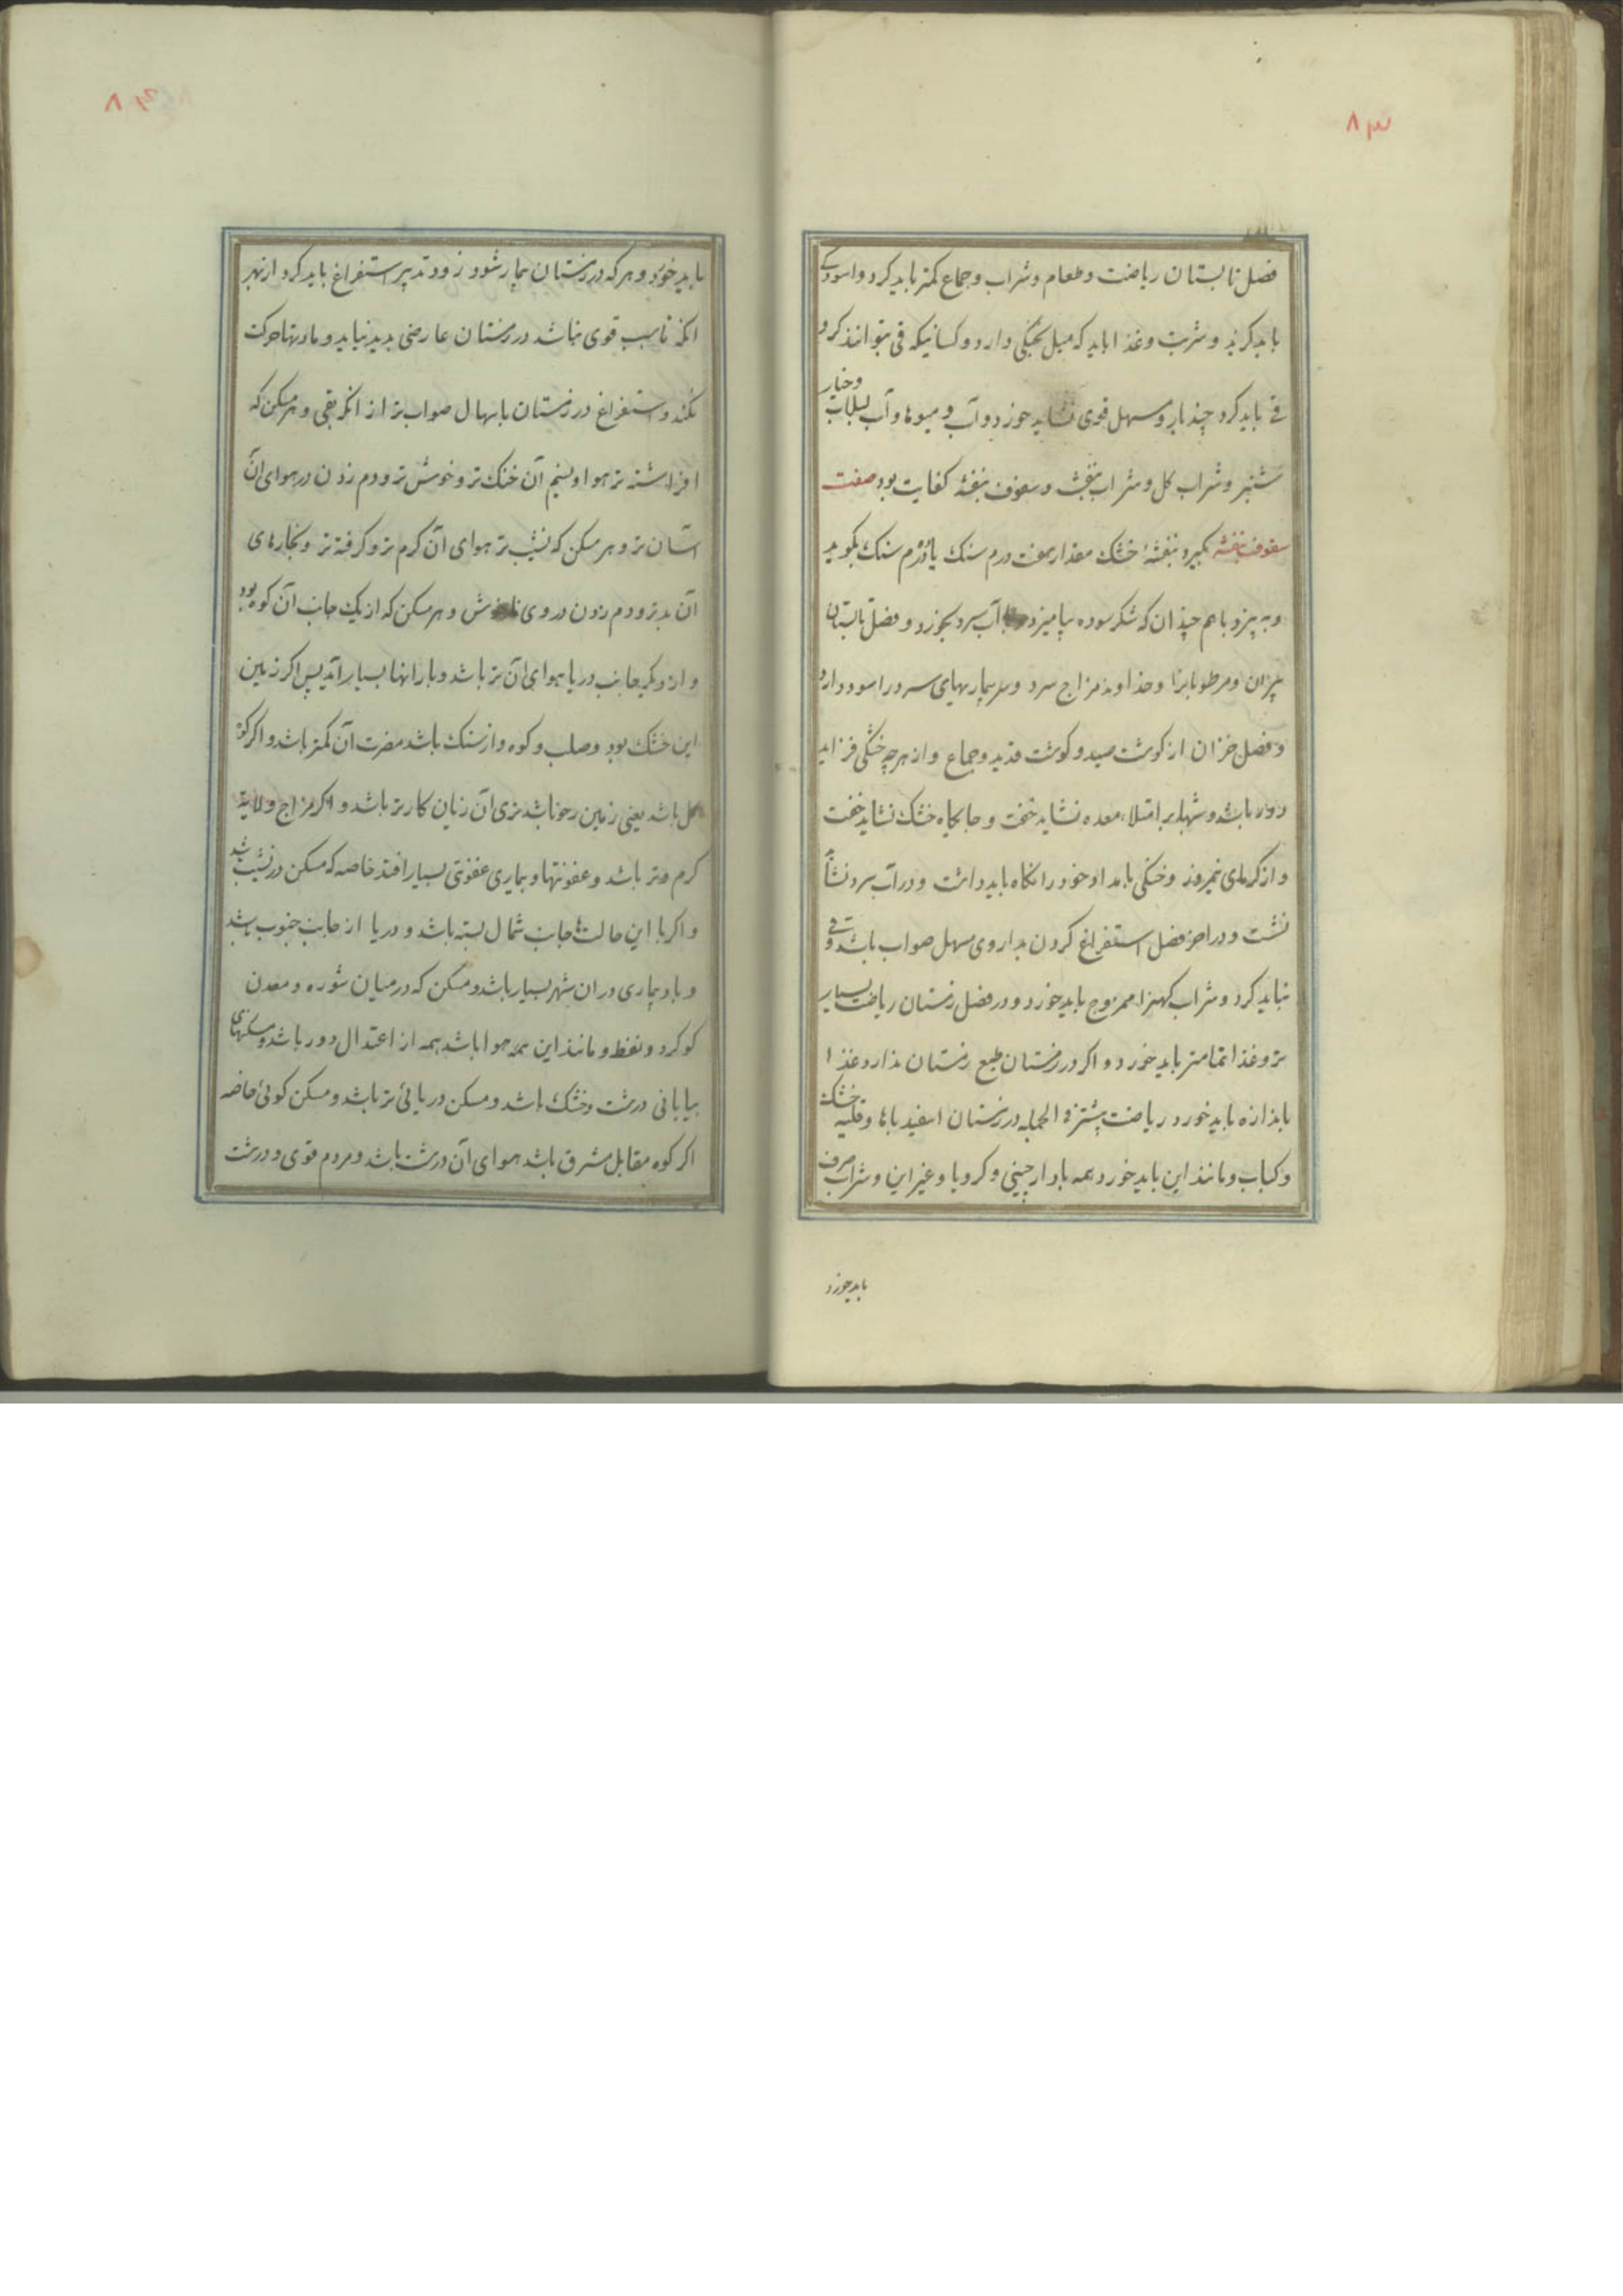 ۸۳
فصل تابستان ریاضت و طعام و شراب و جماع کمتر باید کرد و اسودکی
باید کزید و شربت و غذا باید که میل بخنکی دارد و کسانیکه قی بتوانند کرد
قی باید کرد چند بار و مسهل قوی نشاید خورد و آب میوها و آب لبلاب و خیار
شنبر و شراب کل و شراب بنفشه و سفوف بنفشه کفایت بود صفت
سفوف بنفشه بکیرد بنفشهٔ خشک مقدار هفت درم سنک یا درم سنک بکوبد
و به پیزد با هم چندان که شکر سوده بیامیزد آب سرد بخورد و فصل تابستان
پیران و مرطوبانرا و خداوند مزاج سرد و بیماریهای سرد را سود دارد
و فصل خزان از کوشت صید و کوشت قدید و جماع و از هرچه خشکی فزاید
دور باشد و شبها بر امتلاء معده نشاید خفت و جایکاه خشک نشاید خفت
و از کرمای نیمروز و خنکی بامداد خود را نکاه باید داشت و در آب سرد نشاید
نشست و در اخر فصل استفراغ کردن بداروی مسهل صواب باشد و قی
نباید کرد و شراب کهنرا ممزوج باید خورد و در فصل زمستان ریاضت بسیار
تر و غذا تمامتر باید خورد و اکر در زمستان طبع زمستان ندارد غذا
باندازه باید خورد و ریاضت بیشتر و الجمله در زمستان اسفیدباها و قلیه خشک
و کباب و مانند این باید خورد همه با دارچینی و کرویا و غیر این و شراب صرف
باید خورد
۸۴
باید خورد و هر که در زمستان بیمار شود زود تدبیر استفراغ باید کرد از بهر
انکه تا سبب قوی نباشد در زمستان عارضی پدید نیاید و مادتها حرکت
نکند و استفراغ در زمستان باسهال صواب تر از انکه بقی و هر مسکن که
افراشته تر هوا و نسیم آن خنک تر و خوش تر و دم زدن در هوای آن
آسان تر و هر مسکن که نشیب تر هوای آن کرم تر و کرفته تر و بخارهای
آن بدتر و دم زدن در وی ناخوش و هر مسکن که از یک جانب آن کوه بود
و از دیکر جانب دریا هوای آن تر باشد و بارانها بسیار آید پس اکر زمین
این خشک بود و صلب و کوه و از سنک باشد مضرت آن کمتر باشد و اکر کوه
کل باشد یعنی زمین رخو باشد تری آن زیان کارتر باشد و اکر مزاج ولایة
کرم و تر باشد و عفونتها و بیماری عفونتی بسیار افتد خاصه که مسکن در نشیب باشد
و اکر با این حالتها جانب شمال بسته باشد و دریا از جانب جنوب باشد
وبا و بیماری در ان شهر بسیار باشد و مسکن که در میان شوره و معدن
کوکرد و نفط و مانند این همه هوا باشد همه از اعتدال دور باشد و مسکنهای
بیابانی درشت و خشک باشد و مسکن دریائی تر باشد و مسکن کوهی خاصه
اکر کوه مقابل مشرق باشد هوای آن درشت باشد و مردم قوی و درشت